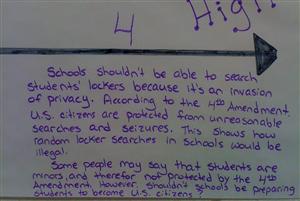 High
4
Schools shouldn't be able to search
students' lockers because it's an invasion
of privacy. According to the 4th Amendment
U.S. citizens are protected from unreasonable
searches and seizures. This shows how
random locker searches in Schools would be
illegal.
Some people may say that students are
minors, and therefor not protected by the 4th
Amendment. However, shouldn't schools be preparing
students to become U.S. citizens?